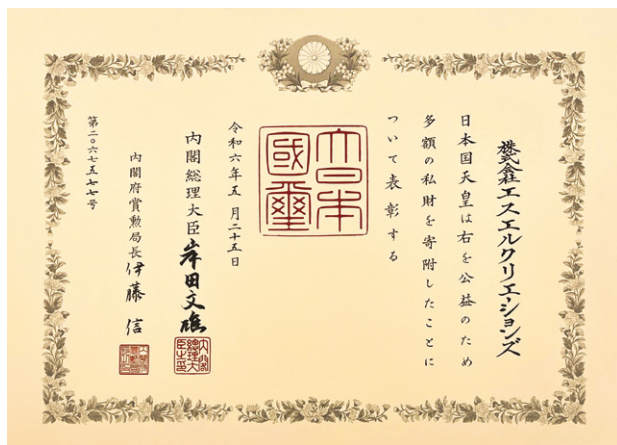 株式会社エスエルクリエーションズ
日本国天皇は右を公益のため
多額の私財を寄附したことに
ついて表彰する
大日本
國璽
令和六年五月二十五日
内閣総理大臣 岸田文雄
内閣府賞勲局長 伊藤 信
第二〇六七五七七号